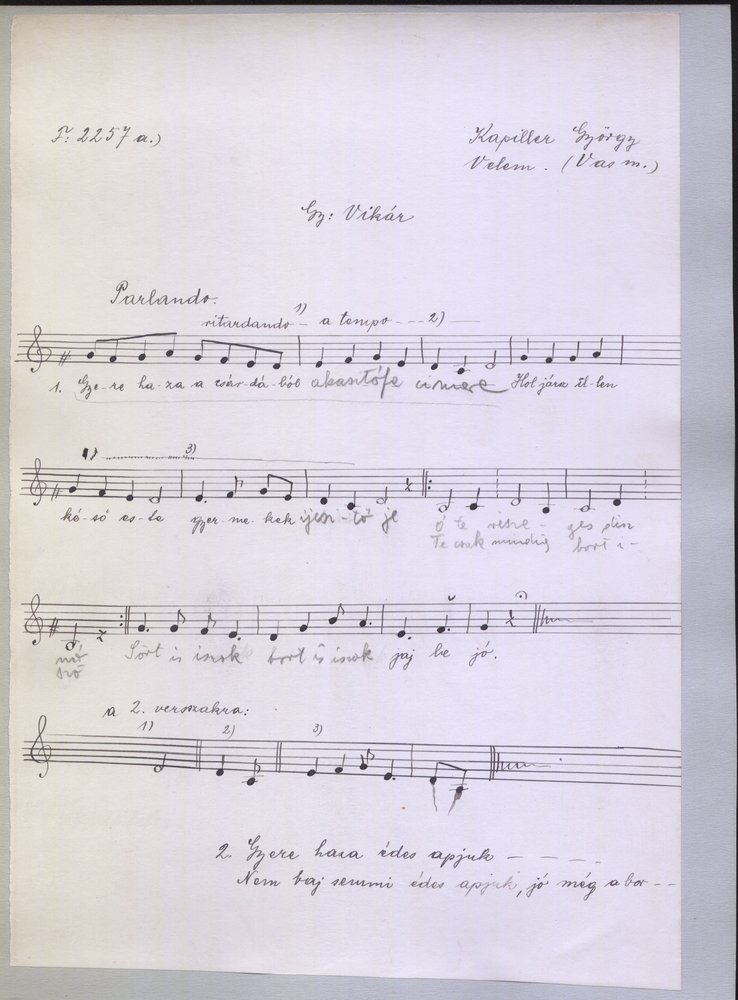 F: 2257 a.)
Kapiller György
Velem. (Vas m.)
Gy: Vikár
Parlando.
ritardando – 1) a tempo --- 2) —
1. Gye-re ha-za a csár-dá-ból akasztófa címere Hol jársz il-len
1) 3)
ké-ső es-te gyer-me-kek ijesz-tő je
Ó te resze-ges disz
Te csak mindig bort i-
nó
szó
Sört is iszok bort is iszok jaj be jó.
a 2. versszakra:
1) 2) 3)
2. Gyere haza édes apjuk – – – –
Nem baj semmi édes apjuk, jó még a bor --